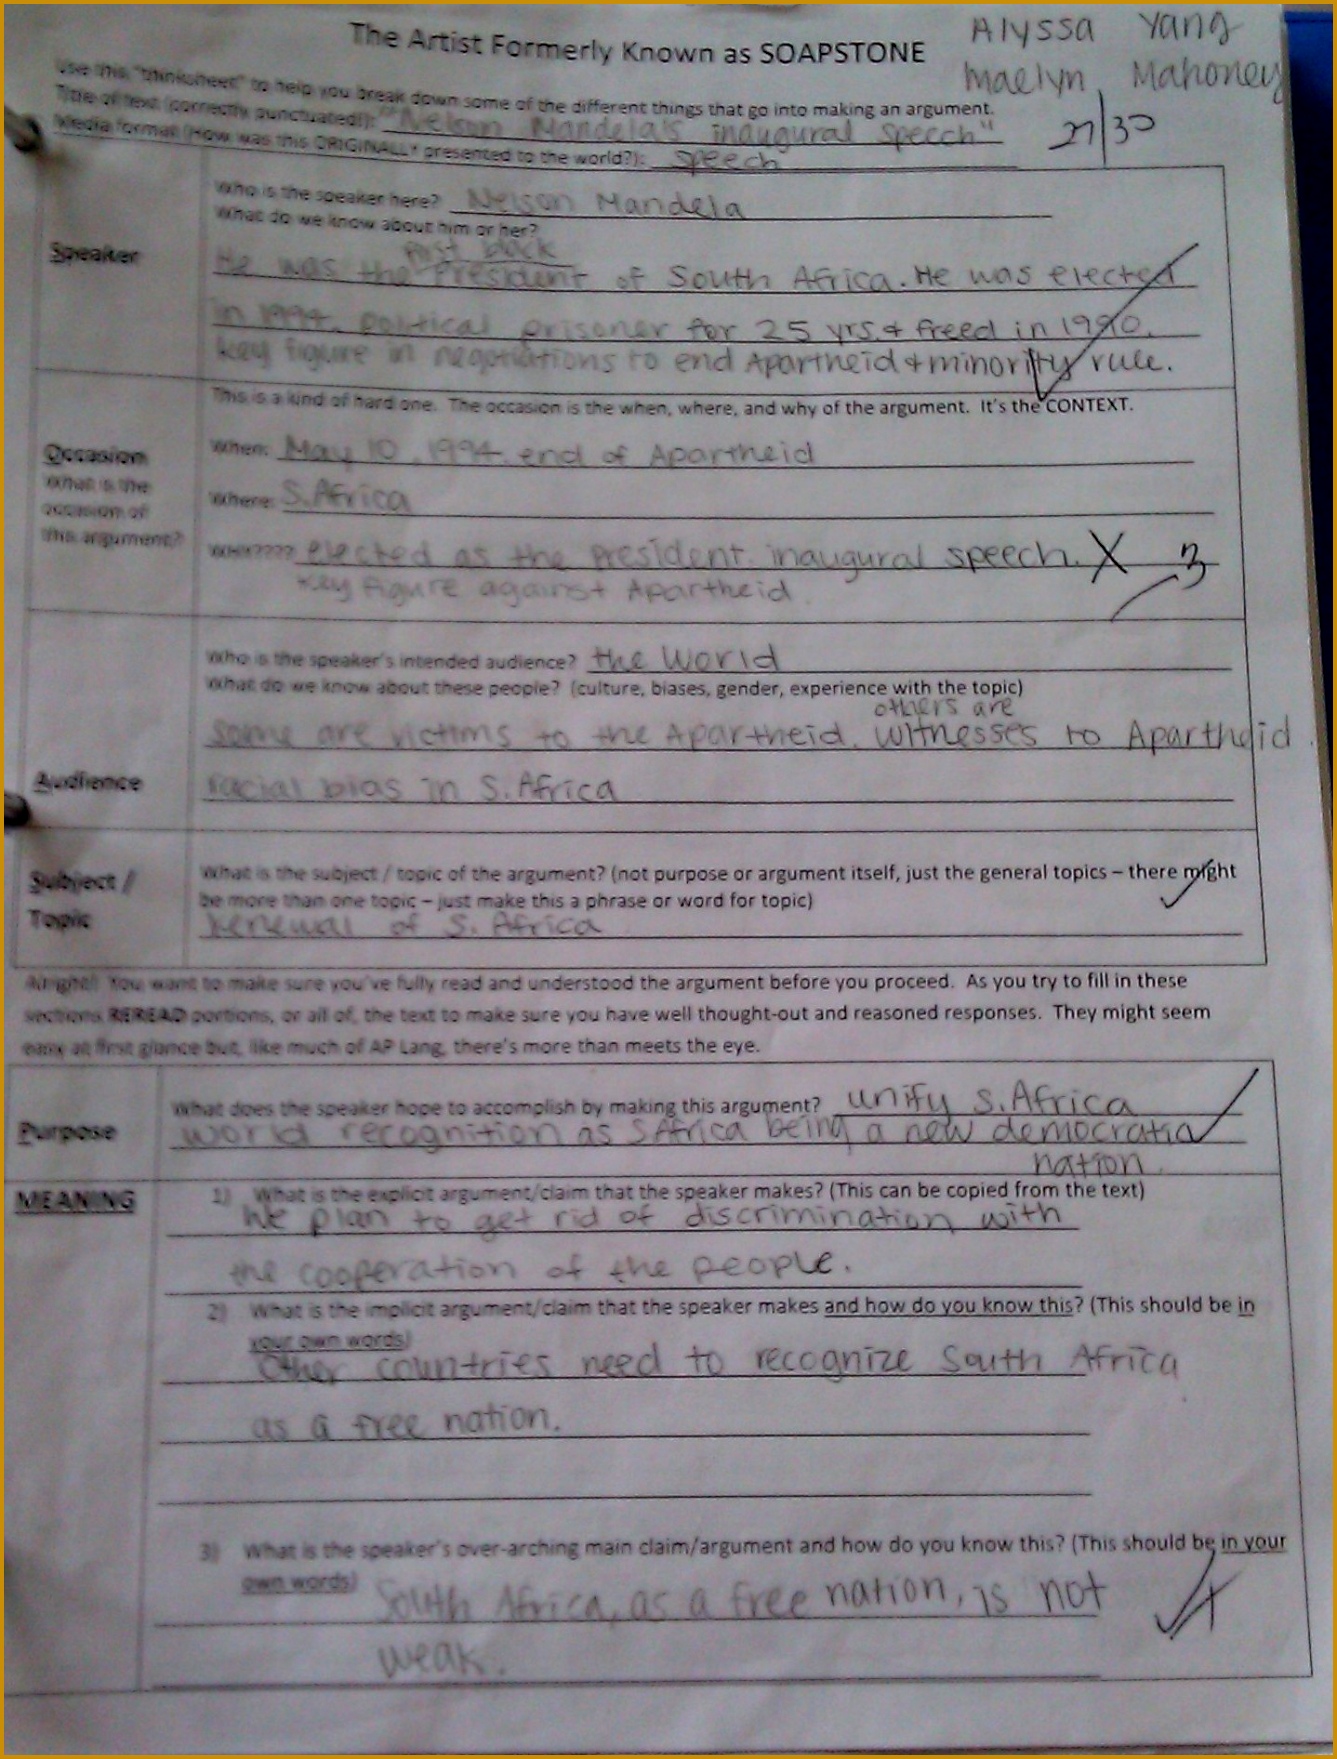 The Artist Formerly Known as SOAPSTONE
Alyssa Yang
Maelyn Mahoney
Use this "thinksheet" to help you break down some of the different things that go into making an argument.
Title of text (correctly punctuated!): "Nelson Mandela's inaugural speech"
27/30
Media format (How was this ORIGINALLY presented to the world?): speech
Speaker
Who is the speaker here? Nelson Mandela
What do we know about him or her?
first black
He was the President of South Africa. He was elected
in 1994. political prisoner for 25 yrs & freed in 1990.
key figure in negotiations to end Apartheid + minority rule.
This is a kind of hard one. The occasion is the when, where, and why of the argument. It's the CONTEXT.
Occasion
What is the
occasion of
this argument?
When: May 10, 1994. end of Apartheid
Where: S. Africa
WHY???? elected as the president. inaugural speech. X 3
key figure against Apartheid
Audience
Who is the speaker's intended audience? the world
What do we know about these people? (culture, biases, gender, experience with the topic)
others are
some are victims to the Apartheid. witnesses to Apartheid.
racial bias in S. Africa
Subject /
Topic
What is the subject / topic of the argument? (not purpose or argument itself, just the general topics – there might
be more than one topic – just make this a phrase or word for topic)
Renewal of S. Africa
Alright! You want to make sure you've fully read and understood the argument before you proceed. As you try to fill in these
sections REREAD portions, or all of, the text to make sure you have well thought-out and reasoned responses. They might seem
easy at first glance but, like much of AP Lang, there's more than meets the eye.
Purpose
What does the speaker hope to accomplish by making this argument? unify S. Africa
world recognition as S Africa being a new democratic
nation.
MEANING
1) What is the explicit argument/claim that the speaker makes? (This can be copied from the text)
We plan to get rid of discrimination with
the cooperation of the people.
2) What is the implicit argument/claim that the speaker makes and how do you know this? (This should be in
your own words)
Other countries need to recognize South Africa
as a free nation.
3) What is the speaker's over-arching main claim/argument and how do you know this? (This should be in your
own words)
South Africa, as a free nation, is not
weak.